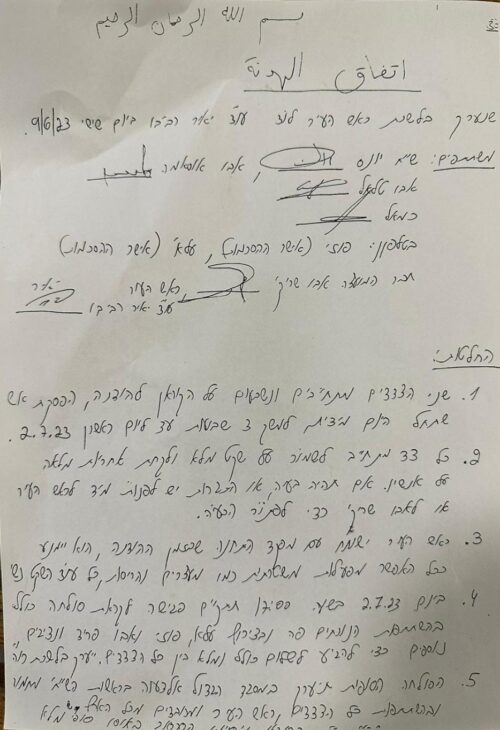 بسم الله الرحمان الرحيم
اتفاق الهدنة
שנערך בלשכת ראש העיר לוד עו״ד יאיר רביבו ביום שישי 9/6/23.
משתתפים: שייח יונס, אבו אוסאמה
אבו טלאל
כמאל
בטלפון: פוזי (אישר ההסכמות), עלא (אישר ההסכמות)
חבר המועצה אבו שריקי, ראש העיר
עו״ד יאיר רביבו
החלטות:
1. שני הצדדים מתחייבים ונשבעים על הקוראן להודנה, הפסקת אש
שתחל היום מיידית, למשך 3 שבועות עד ליום ראשון 2.7.23.
2. כל צד מתחייב לשמור על שקט מלא ולקחת אחריות מלאה
על אנשיו. אם תהיה בעיה, או התגרות יש לפנות מיד לראש העיר
או לאבו שריקי כדי לפתור הבעיה.
3. ראש העיר ישוחח עם מפקד התחנה שבזמן ההודנה, הוא יימנע
ככל האפשר מפעולות משטרתיות כמו מעצרים והריסות, כל עוד השקט נש
4. ביום 2.7.23 בשעה תתקיים פגישה לקראת סולחה כולל
בהשתתפות הנוכחים פה ובצירוף עלא, פוזי ואבו פריד ונציגים
נוספים כדי להגיע לשלום כולל ומלא בין כל הצדדים. ייערך בלשכת
5. הסולחה הסופית תיערך במסגד הגדול אלעומרי בראשות השייח
ובהשתתפות כל הצדדים, ראש העיר ומכובדים מכל הארץ